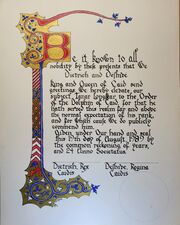 Be it known to all
nobility by these presents that We
Dietrich and Defhile
King and Queen of Caid send
greetings. We hereby elevate our
subject, Lonar Longstar to the Order
of the Dolphin of Caid, for that he
hath served this realm far and above
the normal expectation of his rank,
and for which cause we do publicly
commend him.
Done under Our hand and seal
this 19th day of August, 1989 by
the common reckoning of years,
and 24 Anno Societatus
Dietrich, Rex
Caidis
Regina
Caidis